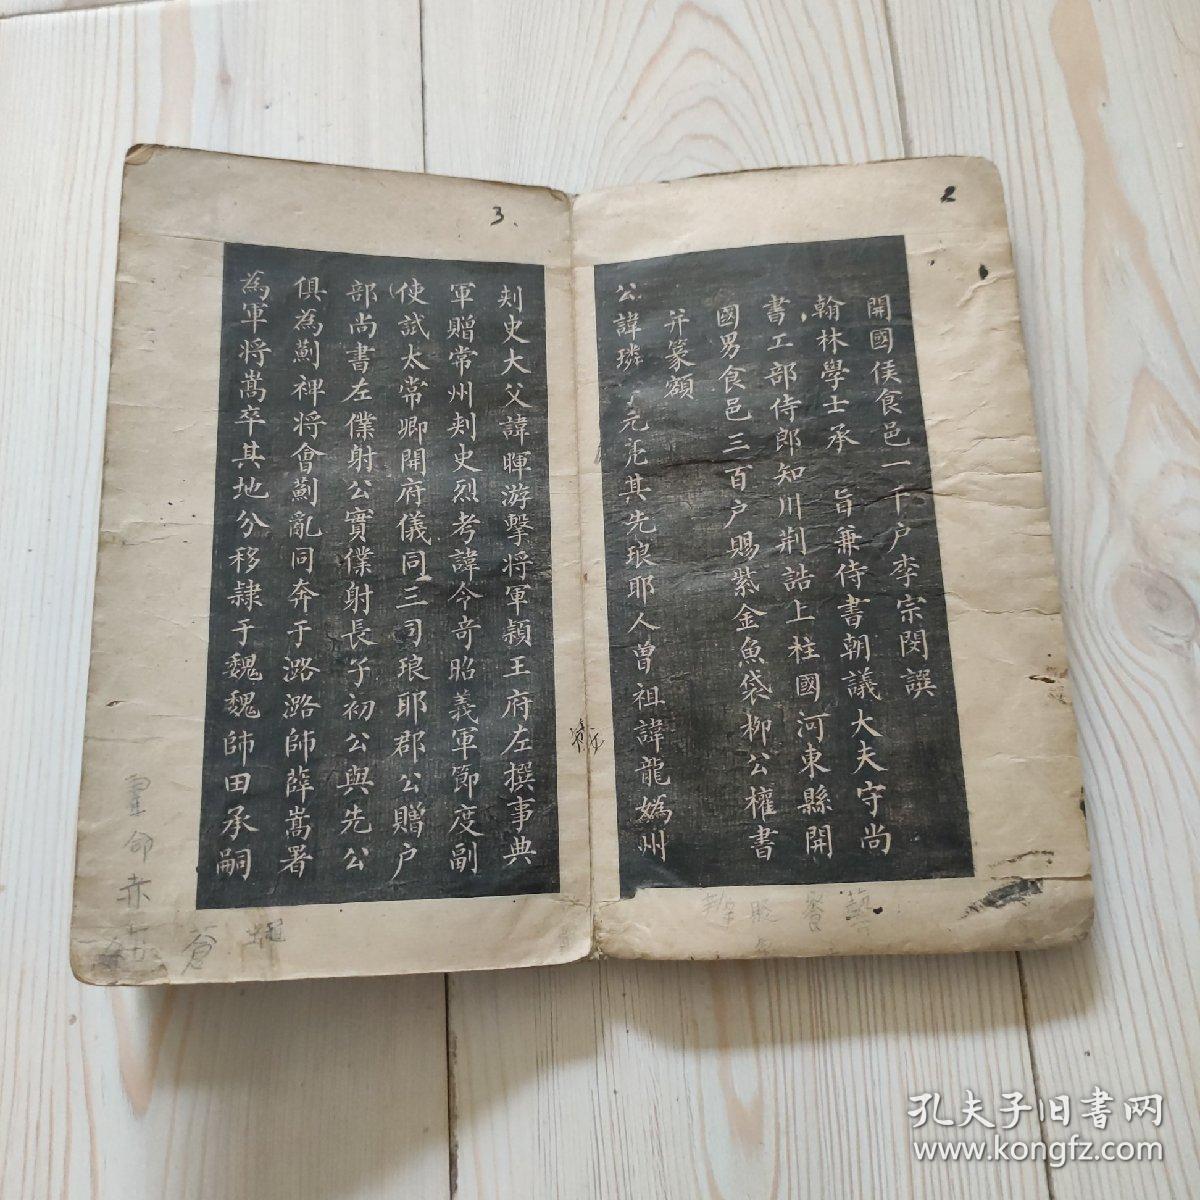 2
開國侯食邑一千户李宗閔譔
翰林學士承 旨兼侍書朝議大夫守尚
書工部侍郎知川荆誥上柱國河東縣開
國男食邑三百户賜紫金魚袋柳公權書
并篆額
公諱璘 元亮其先琅耶人曾祖諱龍嬀州
3.
刾史大父諱暉游擊將軍穎王府左㩀事典
軍贈常州刾史烈考諱令奇昭義軍節度副
使試太常卿開府儀同三司琅耶郡公贈户
部尚書左僕射公實僕射長子初公與先公
俱為薊裨將會薊亂同奔于潞潞師薛嵩署
為軍将嵩卒其地分移隷于魏魏師田承嗣
孔夫子旧书网
www.kongfz.com